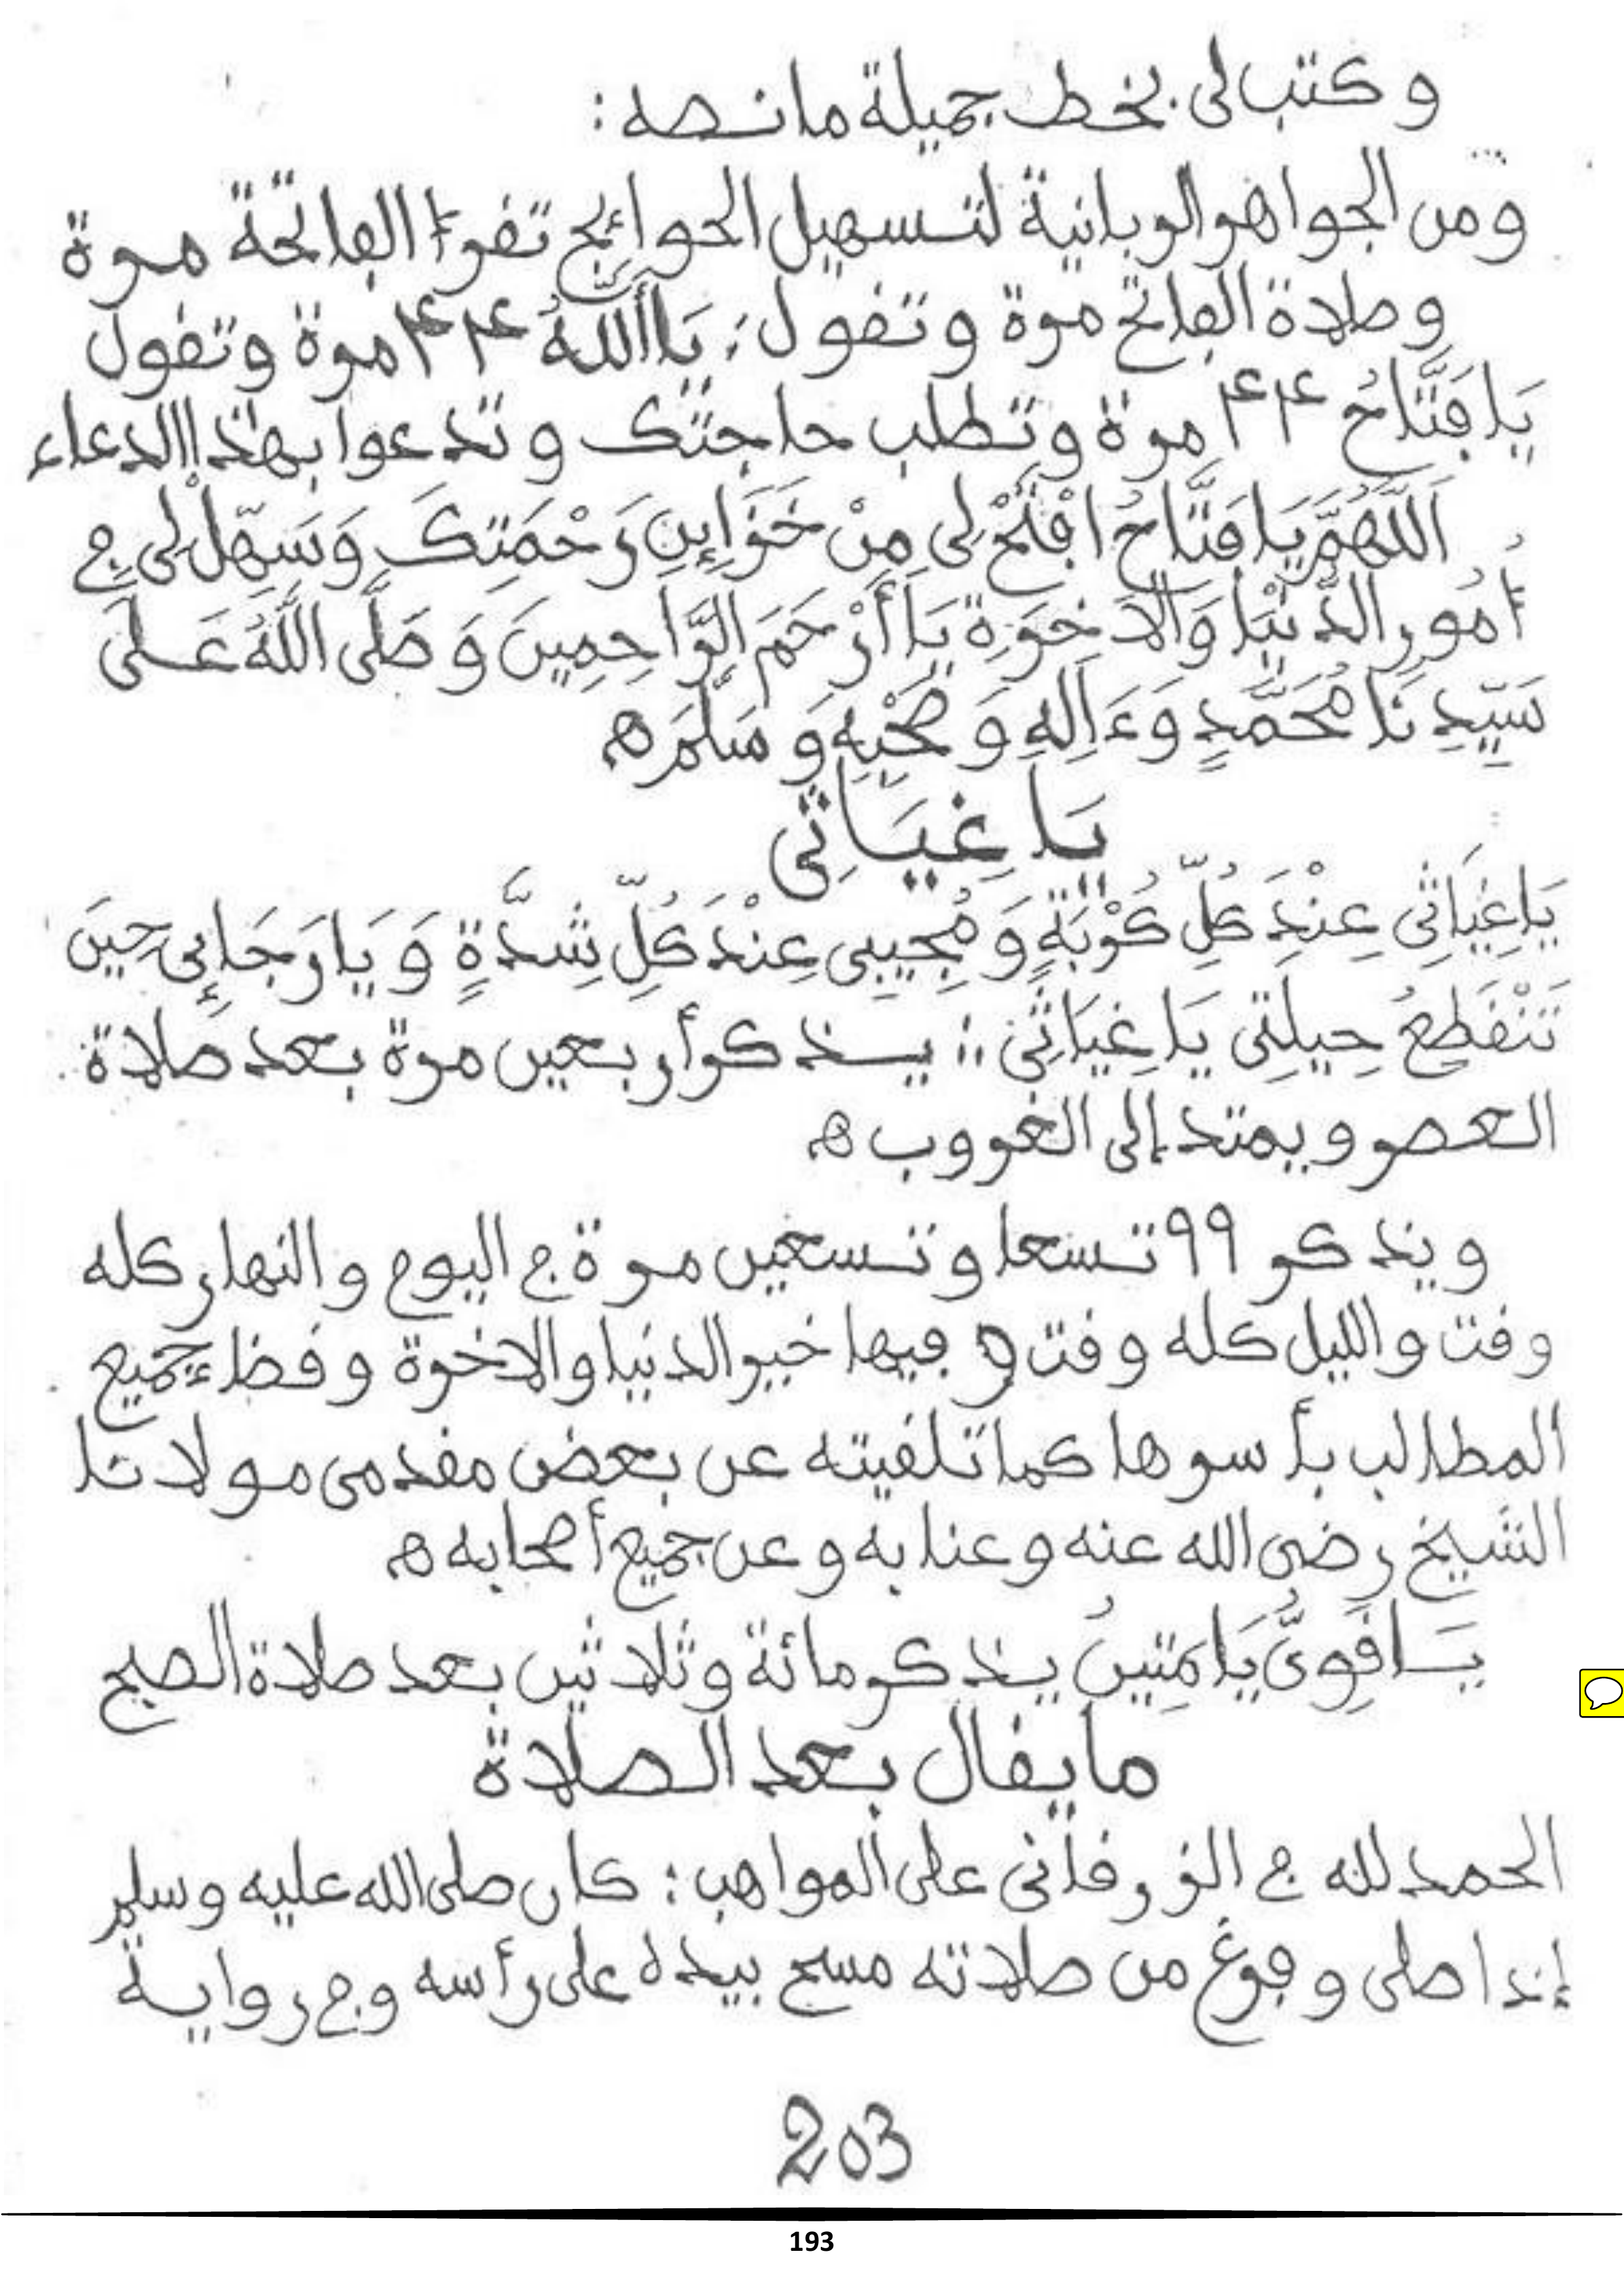 وكتب لى بخط جميلة ما نصه :
ومن الجواهر الربانية لتسهيل الحوائج تقرء الفاتحة مرة
وصلاة الفاتح مرة وتقول : يَا أَللَّهُ ۴۴ مرة وتقول
يَا فَتَّاحُ ۴۴ مرة وتطلب حاجتك وتدعوا بهذا الدعاء
اَللَّهُمَّ يَا فَتَّاحُ افْتَحْ لِى مِنْ خَزَاِئنِ رَحْمَتِكَ وَسَهِّلْ لِى فِى
أُمُورِ الدُّنْيَا وَالاَخِرَةِ يَا أَرْحَمَ الرَّاحِمِينَ وَصَلَّى اللَّهُ عَلَى
سَيِّدِنَا مُحَمَّدٍ وَءَالِهِ وَصَحْبِهِ وَسَلَّمَ ه
يَا غِيَاثِى
يَا غِيَاثِى عِنْدَ كُلِّ كُرْبَةٍ وَمُجِيبِى عِنْدَ كُلِّ شِدَّةٍ وَيَا رَجَاِئى حِينَ
تَنْقَطِعُ حِيلَتِى يَا غِيَاثِى :: يذكر أربعين مرة بعد صلاة
العصر ويمتد إلى الغروب ه
ويذكر ٩٩ تسعا وتسعين مرة فى اليوم والنهار كله
وقت والليل كله وقت و فيها خير الدنيا والاخرة وقضاء جميع
المطالب بأسرها كما تلقيته عن بعض مقدمى مولانا
الشيخ رضى الله عنه وعنا به وعن جميع أصحابه ه
يَا قَوِىُّ يَا مَتِينُ يذكر مائة وثلاثين بعد صلاة الصبح
ما يقال بعد الصلاة
الحمد لله فى الزرقانى على المواهب : كان صلى الله عليه وسلم
إذا صلى وفرغ من صلاته مسح بيده على رأسه وفى رواية
203
193